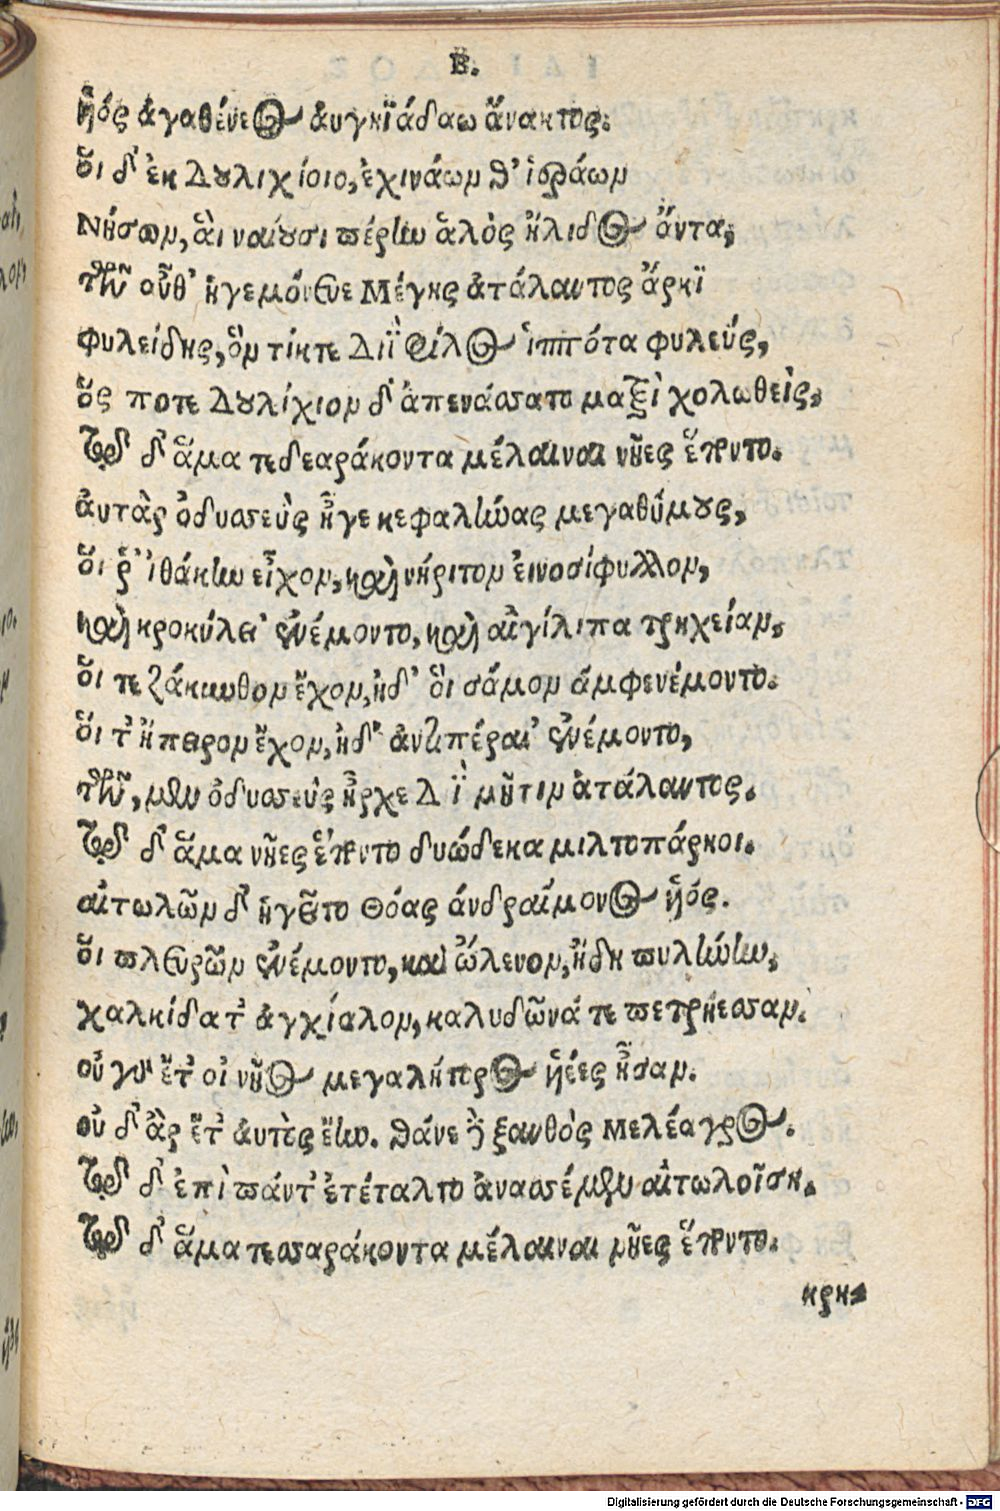 Β.
ἡὸς ἀγαθένεος ἀυγηϊάδαω ἄνακτος.
ὅι δ' ἐκ Δουλιχίοιο, ἐχινάων θ' ἱεράων
Νήσων, ἃι ναίουσι πέρην ἁλὸς ἤλιδος ἄντα,
τῶν αὖθ' ἡγεμόνευε Μέγης ἀτάλαντος ἄρηϊ
φυλείδης, ὃν τίκτε Διῒ φίλος ἱππότα φυλεύς,
ὅς ποτε Δουλίχιον δ' ἀπενάσσατο πατρὶ χολωθείς.
τῷ δ' ἅμα τεσσαράκοντα μέλαιναι νῆες ἕποντο.
ἀυτὰρ ὀδυσσεὺς ἦγε κεφαλλῆνας μεγαθύμους,
ὅι ῥ' ἰθάκην εἶχον, καὶ νήριτον ἐινοσίφυλλον,
καὶ κροκύλει' ἐνέμοντο, καὶ αἰγίλιπα τρηχεῖαν,
ὅι τε ζάκυνθον ἔχον, ἠδ' ὅι σάμον ἀμφενέμοντο.
ὅι τ' ἤπειρον ἔχον, ἠδ' ἀντιπέραι' ἐνέμοντο,
τῶν, μὲν ὀδυσσεὺς ἦρχε Διῒ μῆτιν ἀτάλαντος.
τῷ δ' ἅμα νῆες ἕποντο δυώδεκα μιλτοπάρηοι.
αἰτωλῶν δ' ἡγεῖτο Θόας ἀνδραίμονος ἡός.
ὅι πλευρῶν ἐνέμοντο, καὶ ὤλενον, ἤδη πυλήνην,
χαλκίδα τ' ἀγχίαλον, καλυδῶνά τε πετρήεσσαν.
οὐ γὰρ ἔτ' οἰνῆος μεγαλήτορος ἡέες ἦσαν.
οὐ δ' ἂρ ἔτ' ἀυτὸς ἔην. θάνε δὲ ξανθὸς Μελέαγρος.
τῷ δ' ἐπὶ πάντ' ἐτέταλτο ἀνασσέμεν αἰτωλοῖσιν.
τῷ δ' ἅμα τεσσαράκοντα μέλαιναι νῆες ἕποντο.
κρη-
Digitalisierung gefördert durch die Deutsche Forschungsgemeinschaft - DFG